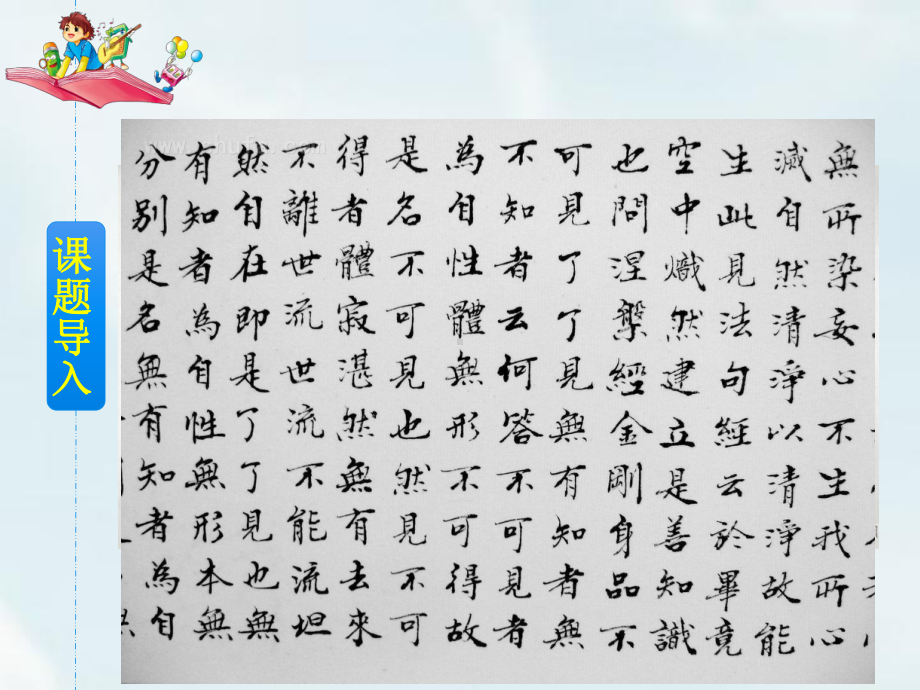 课题导入
無所染妄心不生我所心
滅自然清淨以清淨故能
生此見法句經云於畢竟
空中熾然建立是善知識
也問涅槃經金剛身品不
可見了了見無有知者無
不知者云何答不可見者
為自性體無形不可得故
是名不可見也然見不可
得者體寂湛然無有去來
不離世流世流不能流坦
然自在即是了了見也無
有知者為自性無形本無
分別是名無有知者為自